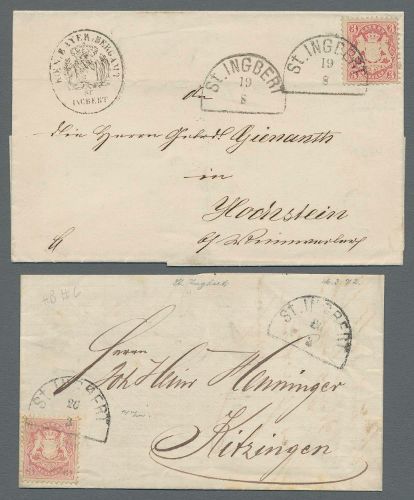 KGL. BAYER. BERGAMT
St. INGBERT
St. INGBERT
19
8
St. INGBERT
19
8
3
3
3
3
An
die Herren Gebrd. Gienanth
in
Hochstein
b/ Winnweiler
St. Ingbert
26.3.72.
St. INGBERT
26
3
Herrn
Joh Heinr Henninger
Kitzingen
St. INGBERT
26
3